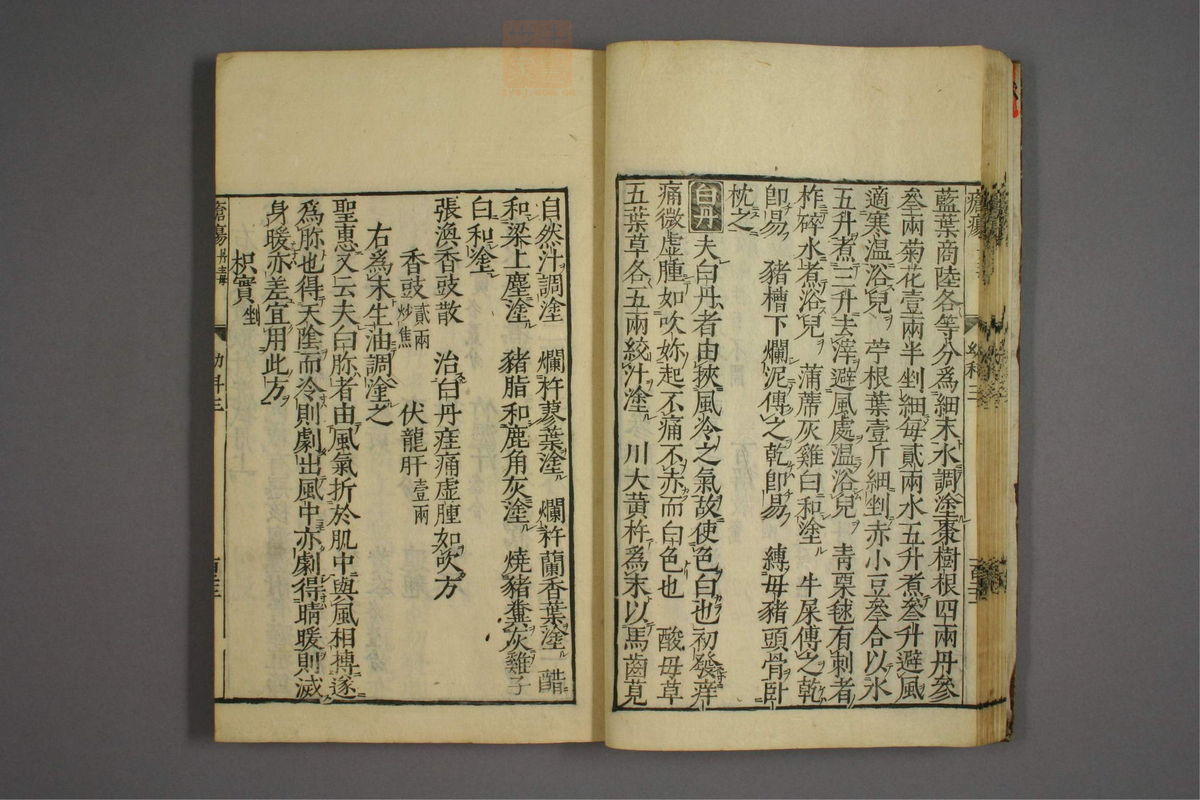 藍葉商陸各等分爲細末水調塗棗樹根四兩丹參
叄兩菊花壹兩半剉細每貳兩水五升煮叄升避風
適寒温浴兒 苧根葉壹斤細剉赤小豆叄合以水
五升煮三升去滓避風處温浴兒 青栗毬有刺者
柞碎水煮浴兒 蒲蓆灰雞白和塗 牛屎傅之乾
即易 豬槽下爛泥傅之乾即易 縛母豬頭骨卧
枕之
白丹 夫白丹者由挾風冷之氣故使色白也初發痒
痛微虛腫如吹妳起不痛不赤而白色也 酸母草
五葉草各五兩絞汁塗 川大黃杵爲末以馬齒莧
自然汁調塗 爛杵蓼葉塗 爛杵蘭香葉塗 醋
和梁上塵塗 豬脂和鹿角灰塗 燒豬糞灰雞子
白和塗
張渙香豉散 治白丹痓痛虛腫如吹方
香豉貳兩炒焦 伏龍肝壹兩
右爲末生油調塗之
聖惠又云夫白胗者由風氣折於肌中與風相搏遂
爲胗也得天陰而冷則劇出風中亦劇得晴暖則滅
身暖亦差宜用此方
枳實
幼科三